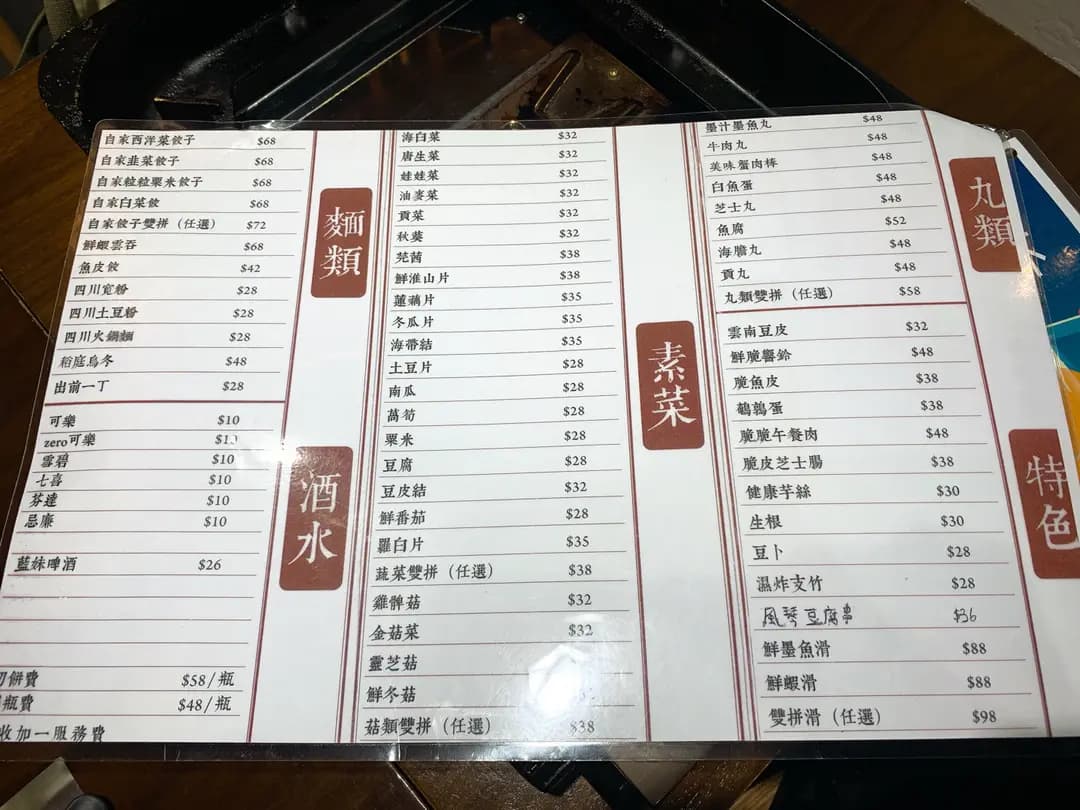 自家西洋菜餃子 $68
自家韭菜餃子 $68
自家粒粒粟米餃子 $68
自家白菜餃 $68
自家餃子雙拼（任選） $72
鮮蝦雲吞 $68
魚皮餃 $42
四川寬粉 $28
四川土豆粉 $28
四川火鍋麵 $28
稻庭烏冬 $48
出前一丁 $28
麵類
可樂 $10
zero可樂
雪碧 $10
七喜 $10
芬達 $10
忌廉 $10
藍妹啤酒 $26
酒水
切餅費 $58/瓶
瓶費 $48/瓶
收加一服務費
海白菜 $32
唐生菜 $32
娃娃菜 $32
油麥菜 $32
貢菜 $32
秋葵 $32
芫茜 $38
鮮淮山片 $38
蓮藕片 $35
冬瓜片 $35
海帶結 $35
土豆片 $28
南瓜 $28
萵筍 $28
粟米 $28
豆腐 $28
豆皮結 $32
鮮番茄 $28
羅白片 $35
蔬菜雙拼（任選） $38
雞髀菇 $32
金菇菜 $32
靈芝菇
鮮冬菇
菇類雙拼（任選） $38
素菜
墨汁墨魚丸 $48
牛肉丸 $48
美味蟹肉棒 $48
白魚蛋 $48
芝士丸 $48
魚腐 $52
海膽丸 $48
貢丸 $48
丸類雙拼（任選） $58
丸類
雲南豆皮 $32
鮮脆響鈴 $48
脆魚皮 $38
鵪鶉蛋 $38
脆脆午餐肉 $48
脆皮芝士腸 $38
健康芋絲 $30
生根 $30
豆卜 $28
濕炸支竹 $28
風琴豆腐串 $36
鮮墨魚滑 $88
鮮蝦滑 $88
雙拼滑（任選） $98
特色